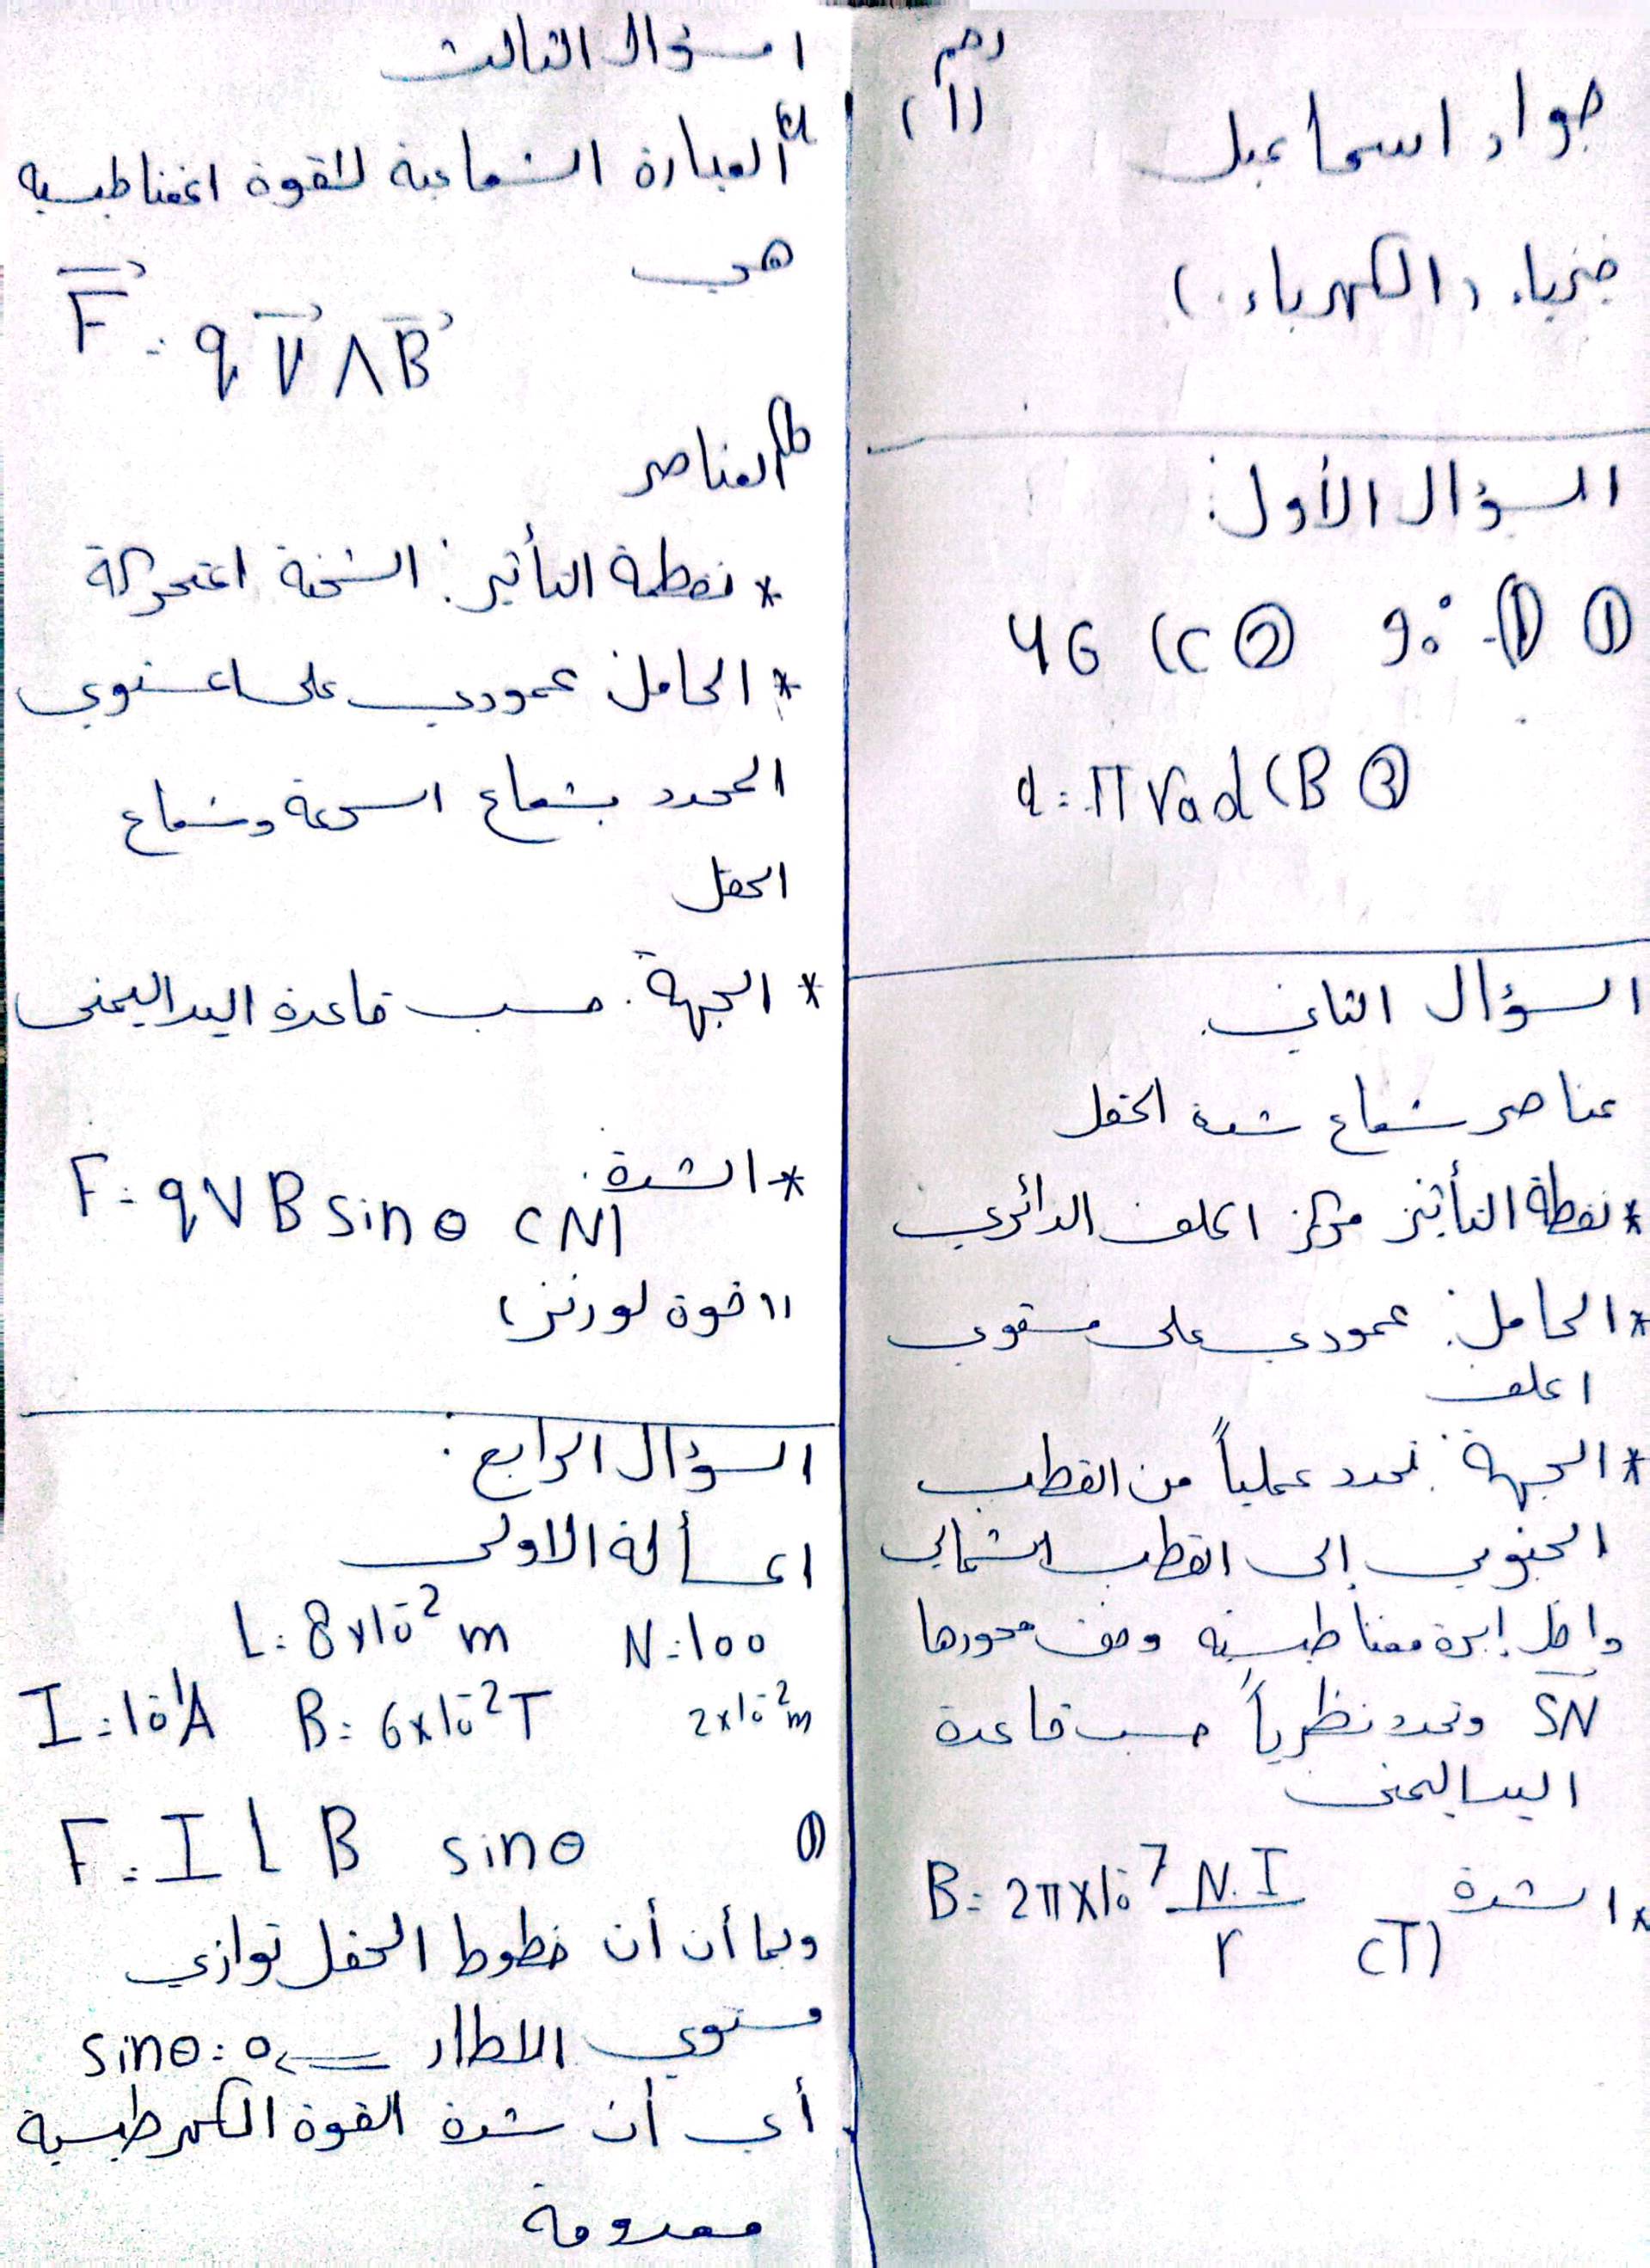 رقم
(1)
جواد اسماعيل
فيزياء (الكهرباء)
السؤال الأول:
① D- 90° ② C) 4G
③ B) α = π rad
السؤال الثاني
عناصر شعاع شدة الحقل
* نقطة التأثير مركز الملف الدائري
* الحامل: عمودي على مستوي
الملف
* الجهة: تحدد عملياً من القطب
الجنوبي إلى القطب الشمالي
داخل إبرة مغناطيسية وفق محورها
SN وتحدد نظرياً حسب قاعدة
اليد اليمنى
* الشدة B = 2π×10⁻⁷ N.I / r (T)
السؤال الثالث
a) العبارة الشعاعية للقوة المغناطيسية
هي
F = q V ∧ B
b) العناصر
* نقطة التأثير: الشحنة المتحركة
* الحامل عمودي على المستوي
المحدد بشعاع السرعة وشعاع
الحقل
* الجهة: حسب قاعدة اليد اليمنى
* الشدة: F = qVB sin θ (N)
"قوة لورنز"
السؤال الرابع:
المسألة الاولى
N = 100 L = 8×10⁻² m
2×10⁻² m B = 6×10⁻² T I = 10⁻¹ A
① F = I L B sin θ
وبما أن أن خطوط الحقل توازي
مستوي الاطار ⇐ sin θ = 0
أي أن شدة القوة الكهرطيسية
معدومة